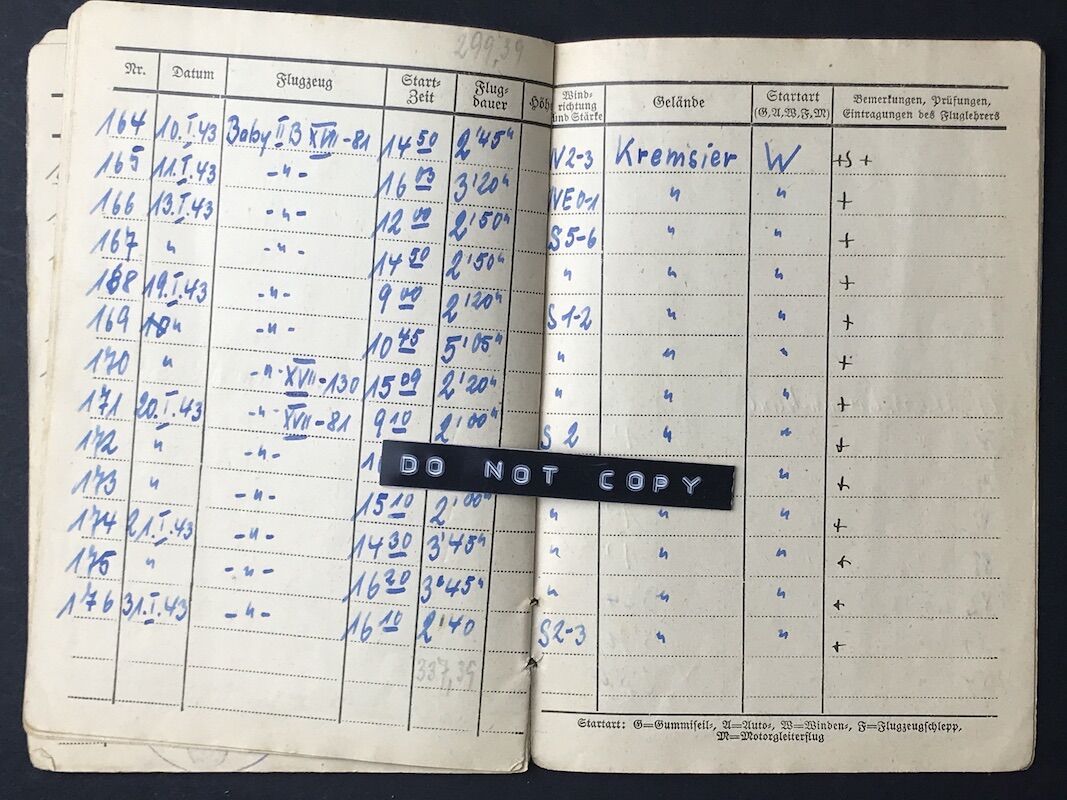 299,39
Nr. Datum Flugzeug Start-Zeit Flug-dauer Höhe Wind-richtung und Stärke Gelände Startart (G,A,W,F,M) Bemerkungen, Prüfungen, Eintragungen des Fluglehrers
164 10.I.43 Baby II B XVII-81 14 50 2'45" W2-3 Kremsier W +
165 11.I.43 -"- 16 03 3'20" 0-1 " " +
166 13.I.43 -"- 12 00 2'50" S5-6 " " +
167 " -"- 14 50 2'50" " " " +
168 19.I.43 -"- 9 00 2'20" S1-2 " " +
169 " -"- 10 45 5'05" " " " +
170 " -"- XVII-130 15 09 2'20" " " " +
171 20.I.43 -"- XVII-81 9 10 2'00" S 2 " " +
172 " -"- " +
DO NOT COPY
173 " -"- 15 10 2'00" " " " +
174 21.I.43 -"- 14 30 3'45" " " " +
175 " -"- 16 20 3'45" " " " +
176 31.I.43 -"- 16 10 2'40 S2-3 " " +
337,39
Startart: G=Gummiseil-, A=Auto-, W=Winden-, F=Flugzeugschlepp,
M=Motorgleiterflug